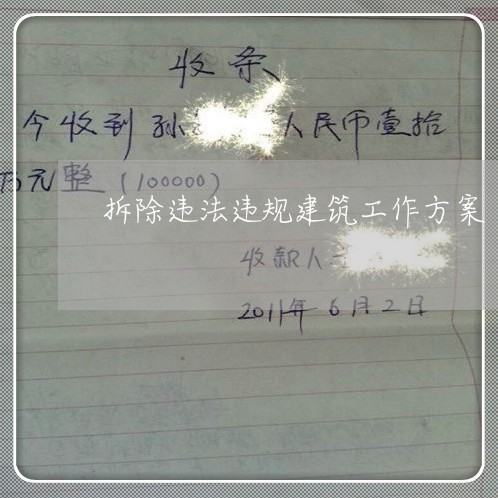 收条
今收到孙 人民币壹拾
万元整（100000）
拆除违法违规建筑工作方案
收款人
2011年6月2日